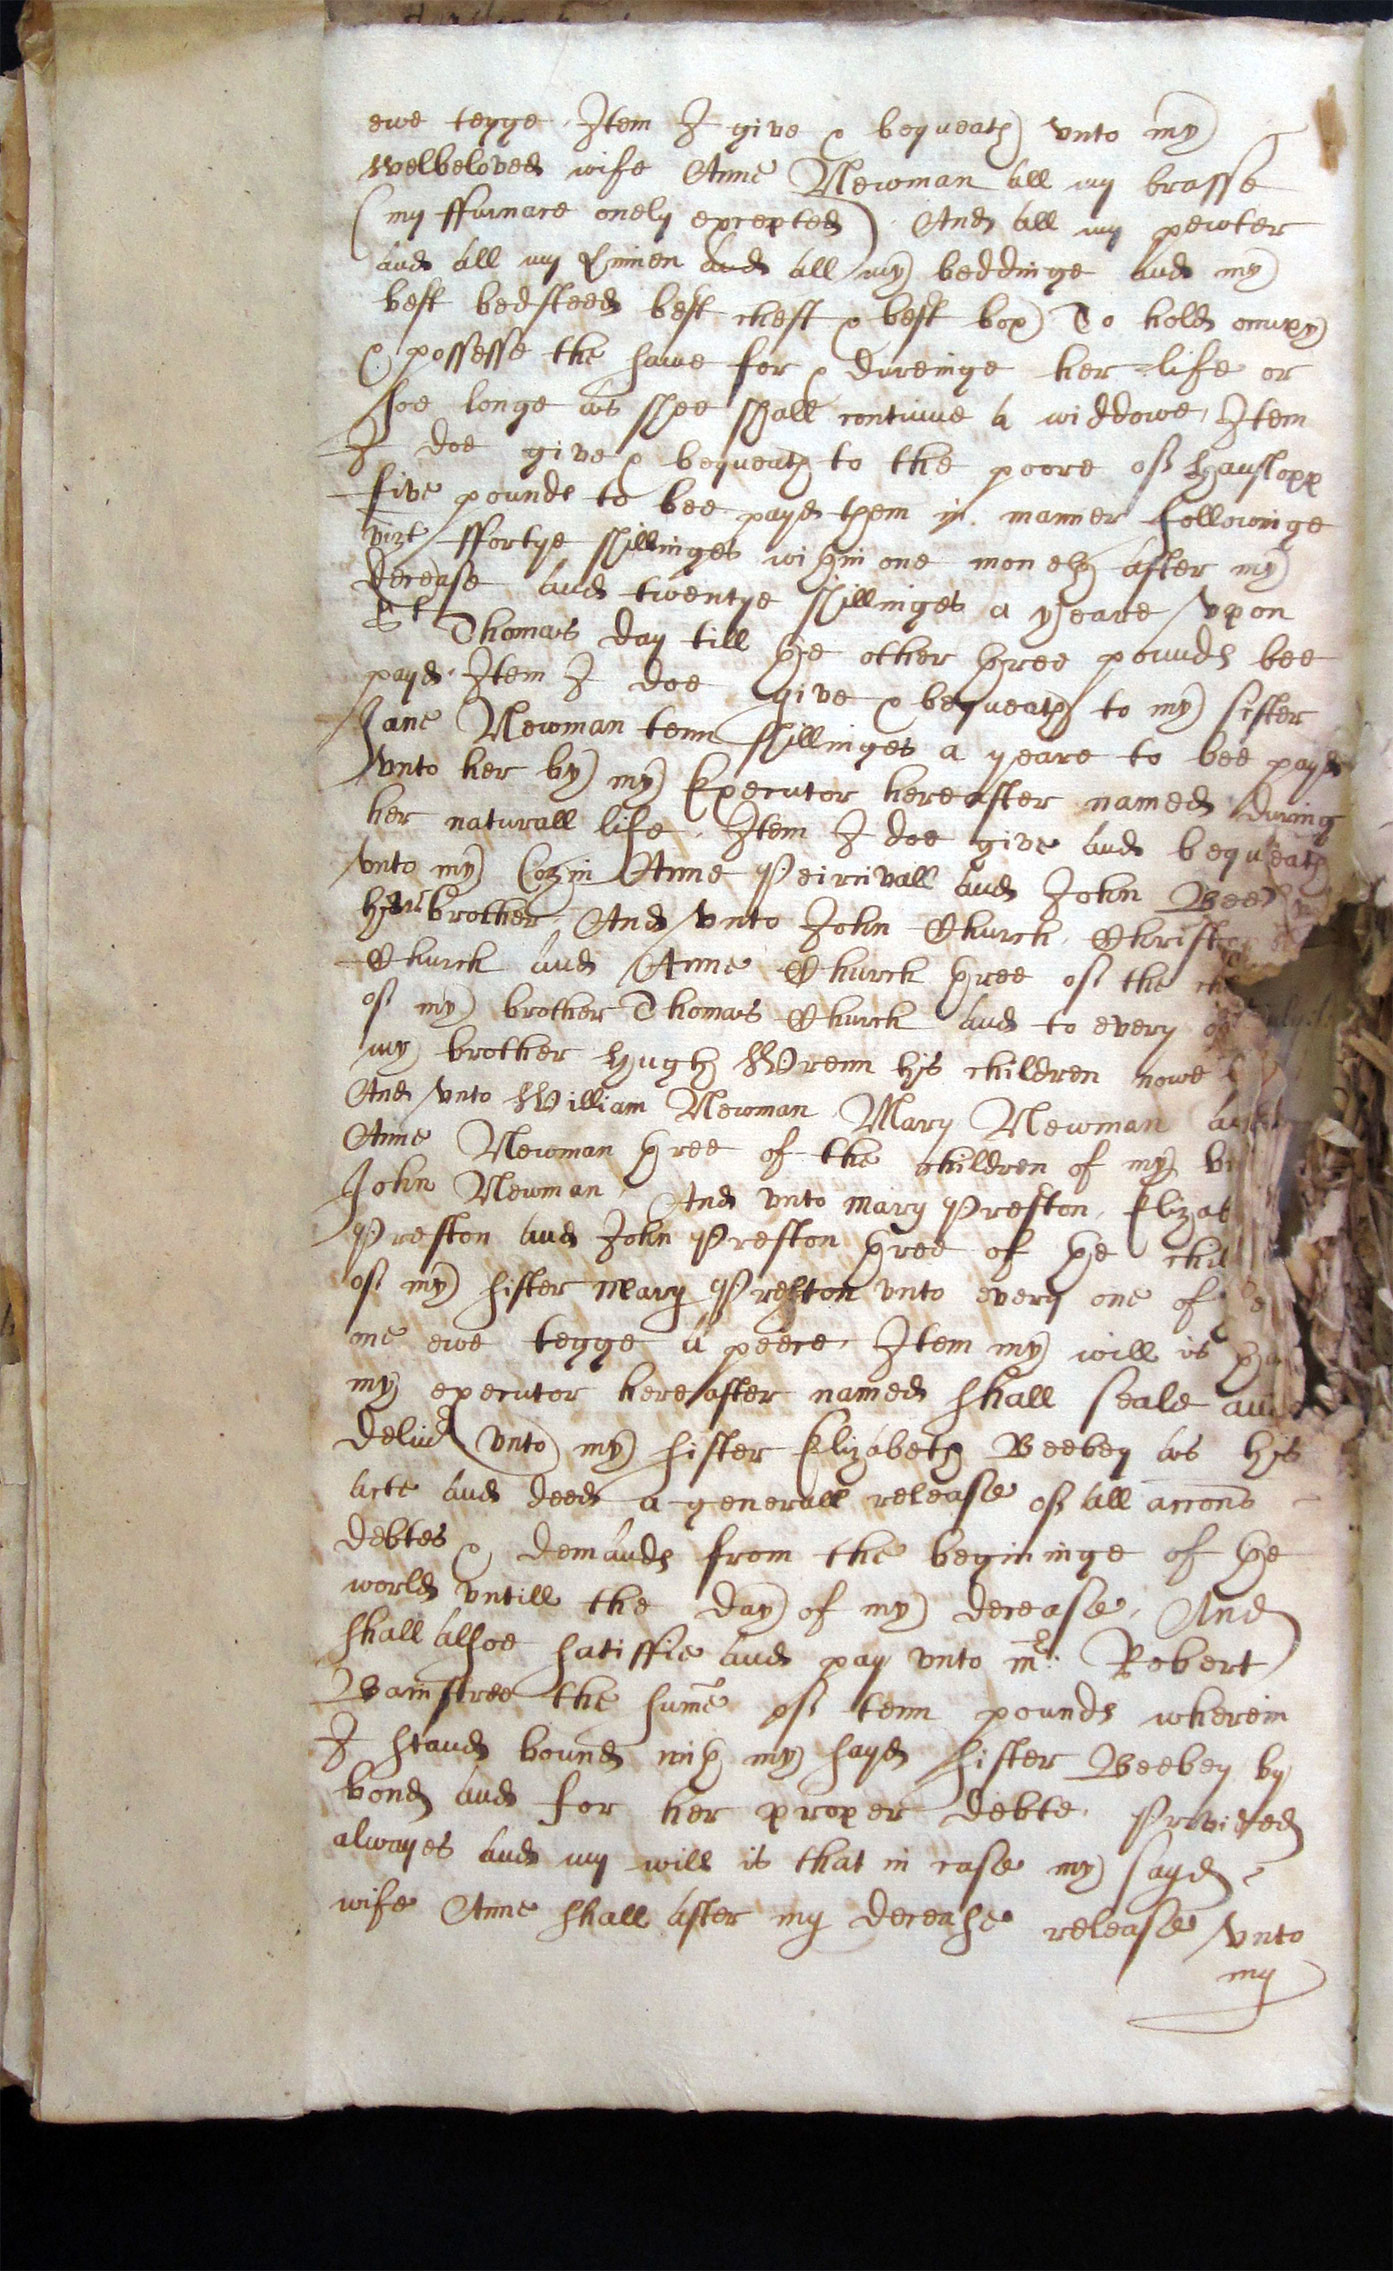 ewe tegge. Item I give & bequeath vnto my
welbeloved wife Anne Newman all my brasse
(my ffurnace onely excepted) And all my pewter
and all my Linnen and all my beddinge and my
best bedsteed best chest & best box To hold occupy
& possesse the same for & dureinge her life or
soe longe as shee shall continue a widdowe, Item
I doe give & bequeath to the poore of Hanslopp
five pounds to bee payd them in manner followinge
vizt ffortye shillinges within one moneth after my
decease and twentye shillinges a yeare vpon
St Thomas day till the other three pounds bee
payd. Item I doe give & bequeath to my sister
Jane Newman tenn shillinges a yeare to bee payd
vnto her by my Executor hereafter named during
her naturall life. Item I doe give and bequeath
vnto my Cozin Anne Peircivall and John
her brother, And vnto John Church, Christo
Church and Anne Church three of the ch
of my brother Thomas Church and to every of
my brother Hugh Wrenn his children nowe
And vnto William Newman Mary Newman and
Anne Newman three of the children of my
John Newman, And vnto Mary Preston, Elizab
Preston and John Preston three of the chil
of my sister Mary Preston vnto every one of
one ewe tegge a peece, Item my will is tha
my executor hereafter named shall seale and
deliud vnto my sister Elizabeth Beebey as his
acte and deed a generall release of all accons
debtes & demands from the begininge of the
world vntill the day of my decease, And
shall alsoe satisffie and pay vnto mr: Robert
the sume of tenn pounds wherein
I stand bound with my sayd sister Beebey by
bond and for her proper debte. Provided
alwayes and my will is that in case my sayd
wife Anne shall after my decease release vnto
my